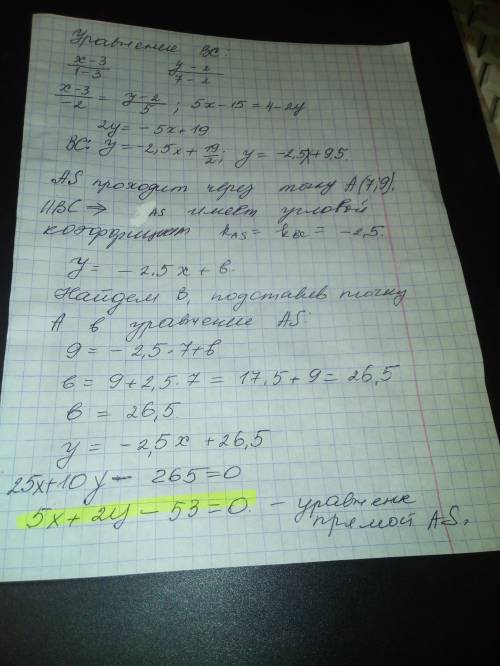 Уравнение BC:
x-3/1-3 y-2/7-2
x-3/-2 = y-2/5 ; 5x-15=4-2y
2y=-5x+19
BC: y=-2,5x+19/2; y=-2,5x+9,5.
AS проходит через точку A(7;9),
||BC⇒ AS имеет угловой
коэффициент k_AS = k_BC = -2,5.
y = -2,5x+в.
Найдем в, подставив точку
A в уравнение AS:
9=-2,5·7+в
в = 9+2,5·7 = 17,5+9=26,5
в = 26,5
y = -2,5x+26,5
25x+10y- 265=0
5x+2y-53=0. - уравнение
прямой AS.